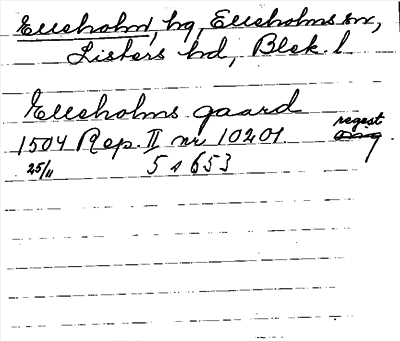 Elleholm, hg, Elleholms sn,
Listers hd, Blek. l.
Elleholms gaard
1504 Rep. II nr 10201. regest
25/11 5 s 653